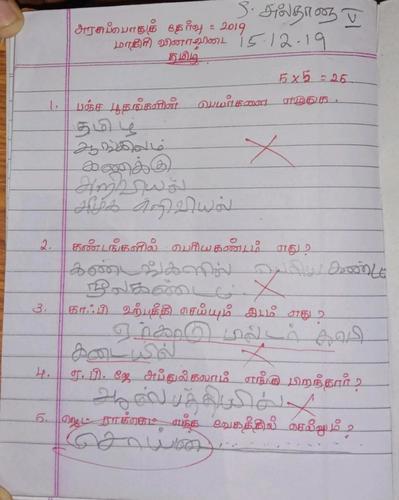 S. அஸ்தானு V
அரசுப்பொதுத் தேர்வு = 2019
மாதிரி வினாவிடை 15.12.19
தமிழ்
5 x 5 = 25
1. பஞ்ச பூதங்களின் பெயர்களை எழுதுக.
தமிழ்
ஆங்கிலம்
கணக்கு
அறிவியல்
சமூக அறிவியல்
2. கண்டங்களில் பெரியகண்டம் எது?
கண்டங்களில் பெரிய கண்டம்
நீலகண்டம்
3. காஃபி உற்பத்தி செய்யும் இடம் எது?
ஏற்காடு பில்டர் காபி
கடையில்
4. ஏ.பி. ஜே அப்துல்கலாம் எங்கு பிறந்தார்?
ஆஸ்பத்திரியில்
5. ஜெட் ராக்கெட் எந்த வேகத்தில் செல்லும்?
சொய்ண